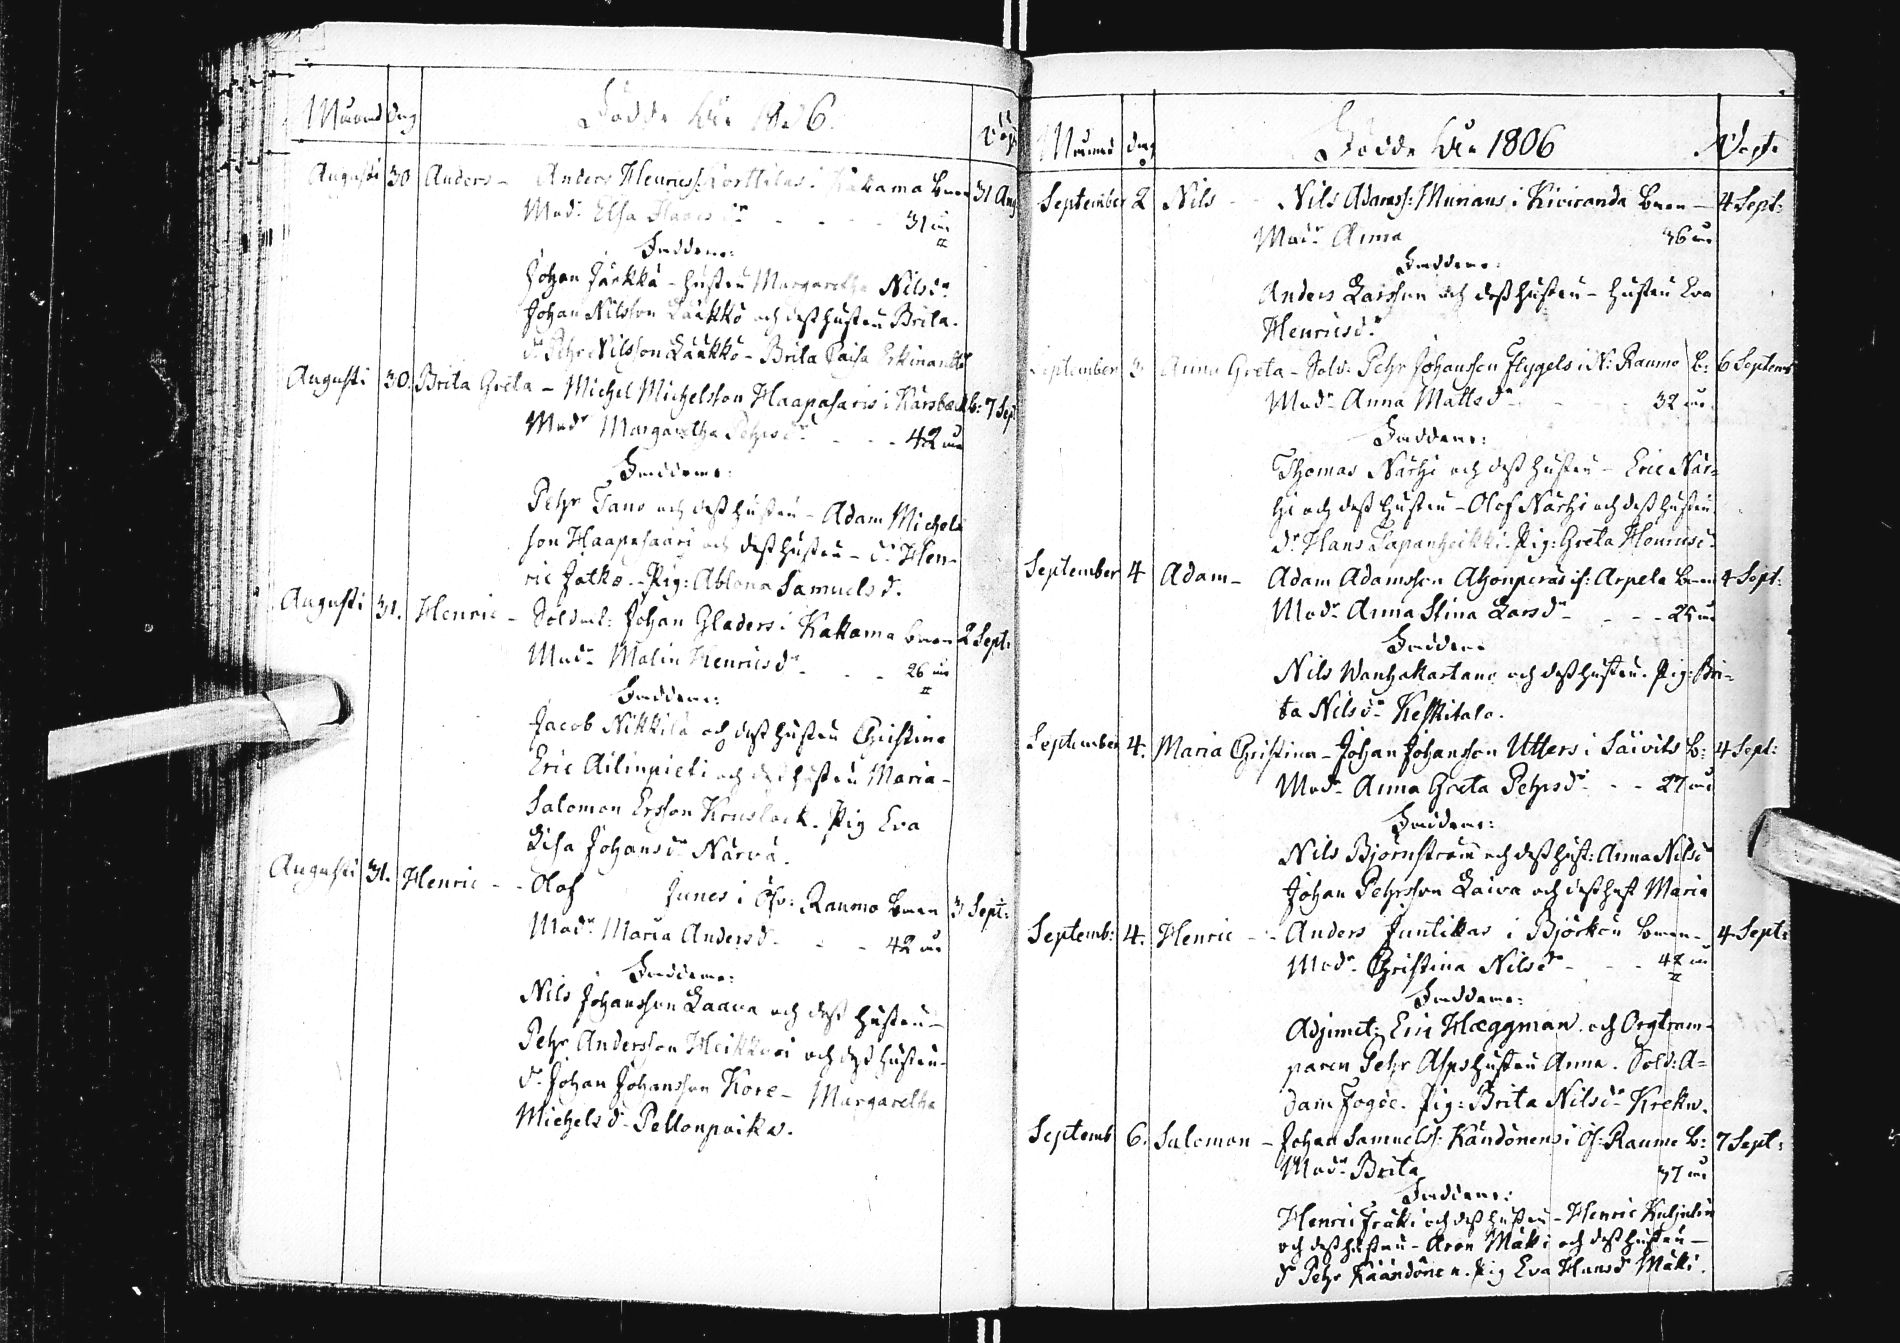 Månad Dag Födde År 1806. Döpt
Augusti 30 Anders - Anders Henricss: i Kakama barn 31 Aug
Mod:r Elsa d:r - - - 31 år
Faddrar:
Johan Jänkkä - hustru Margaretha Nilsd:r
Johan Nilsson Laukko och dess hustru Brita -
d:r Pehr Nilsson Laukko - Brita Caisa
Augusti 30. Brita Greta - Michel Michelsson Haapasaris i Karsbäck b: 7 Sep
Mod:r Margaretha Pehrsd:r - - - 42 år
Faddrar:
Pehr Tano och dess hustru - Adam Michels
son Haapasaari och dess hustru - d:r Hen-
ric Jatko - Pig: Ablona Samuelsd.
Augusti 31. Henric - Soldat: Johan Gladers i Kakama barn 2 Sept:
Mod:r Malin Henricsd:r - - - 26 år
Faddrar:
Jacob Nikkilä och dess hustru Christina
Eric Ailinpieti och dess hustru Maria -
Salomon Ersson . Pig Eva
Lisa Johansd:r Närvä.
Augusti 31. Henric - - Olof Junes i Öfv: Raumo barn 3 Sept:
Mod:r Maria Andersd - - - 42 år
Faddrar:
Nils Johansson Laava och dess hustru -
Pehr Andersson Heikkari och dess hustru -
d:r Johan Johansson Kore - Margaretha
Michelsd:r Peltonpoika.
Månad dag Födde År 1806 Döpt.
September 2 Nils - - Nils Adamss: i Kiviranda barn - 4 Sept:
Mod:r Anna 36 år
Faddrar:
Anders Larsson och dess hustru - hustru Eva
Henricsd:r
September 3. Anna Greta - Sold: Pehr Johansson Flygels i N: Raumo b: 6 Septemb
Mod:r Anna Mattsd:r - - - 32 år
Faddrar:
Thomas Närhi och dess hustru - Eric När-
hi och dess hustru - Olof Närhi och dess hustru
d:r Hans Tapanheikki. Pig: Greta Henricsd:
September 4 Adam - Adam Adamsson i Arpela barn 4 Sept:
Mod:r Anna Stina Larsd:r - - - 25 år
Faddrar
Nils Wanhakartano och dess hustru. Pig: Bri-
ta Nilsd:r Keskitalo.
September 4. Maria Christina - Johan Johansson Utters i Säivits b: 4 Sept:
Mod:r Anna Greta Pehrsd:r - - 27 år
Faddrar:
Nils Björnström och dess hust: Anna Nilsd
Johan Pehrsson Laiva och dess hust Maria
Septemb: 4. Henric - - Anders Juntikas i Björkön barn - 4 Sept:
Mod:r Christina Nilsd:r - - - 42 år
Faddrar:
Adjunct: Eric Hæggman och Orgtram-
paren Pehr Asps hustru Anna. Sold: A-
dam Fogde. Pig: Brita Nilsd:r Kreku.
Septemb 6. Salomon - Johan Samuelss: Kändönens i Öf: Raumo b: 7 Sept:
Mod:r Brita 37 år
Faddrar:
Henric Fräki och dess hustru - Henric
och dess hustru - Aron Mäki och dess hustru -
d:r Pehr Käändönen. Pig Eva Hansd Mäki.